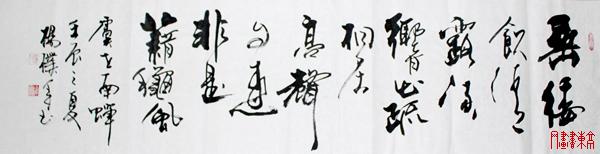 垂緌
飲清
露流
響出疏
桐居
高聲
自遠
非是
藉穐風
虞世南蟬
壬辰之夏
楊